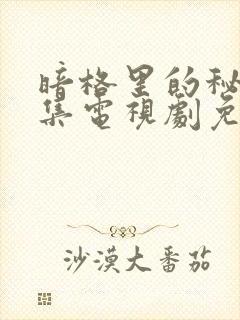 暗格里的秘
集電視劇免
沙漠大番茄